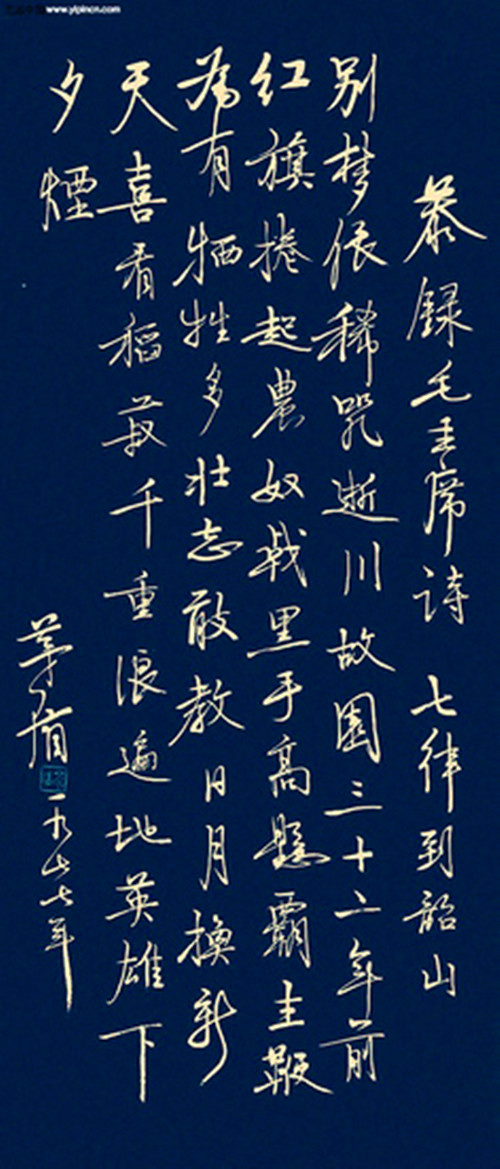 www.yipincn.com
恭録毛主席诗 七律到韶山
别梦依稀咒逝川故園三十二年前
红旗捲起農奴戟黑手高懸霸主鞭
為有牺牲多壮志敢教日月換新
天喜看稻菽千重浪遍地英雄下
夕煙
茅盾 一九七年